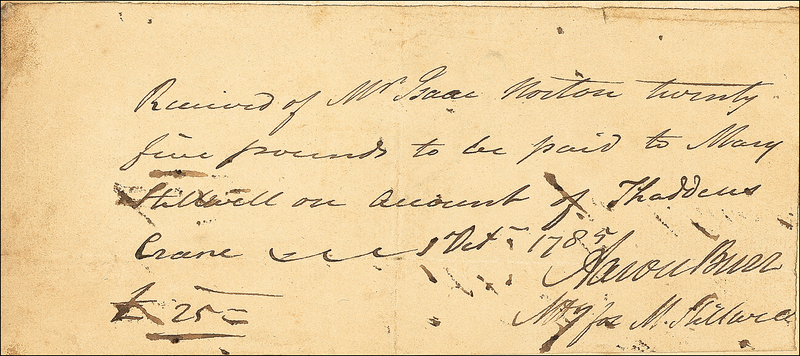 Received of Mr Isaac Norton twenty
five pounds to be paid to Mary
Stillwell on account of Thaddeus
Crane 1 Oct. 1785
Aaron Burr
£ 25=
Atty for M. Stillwell